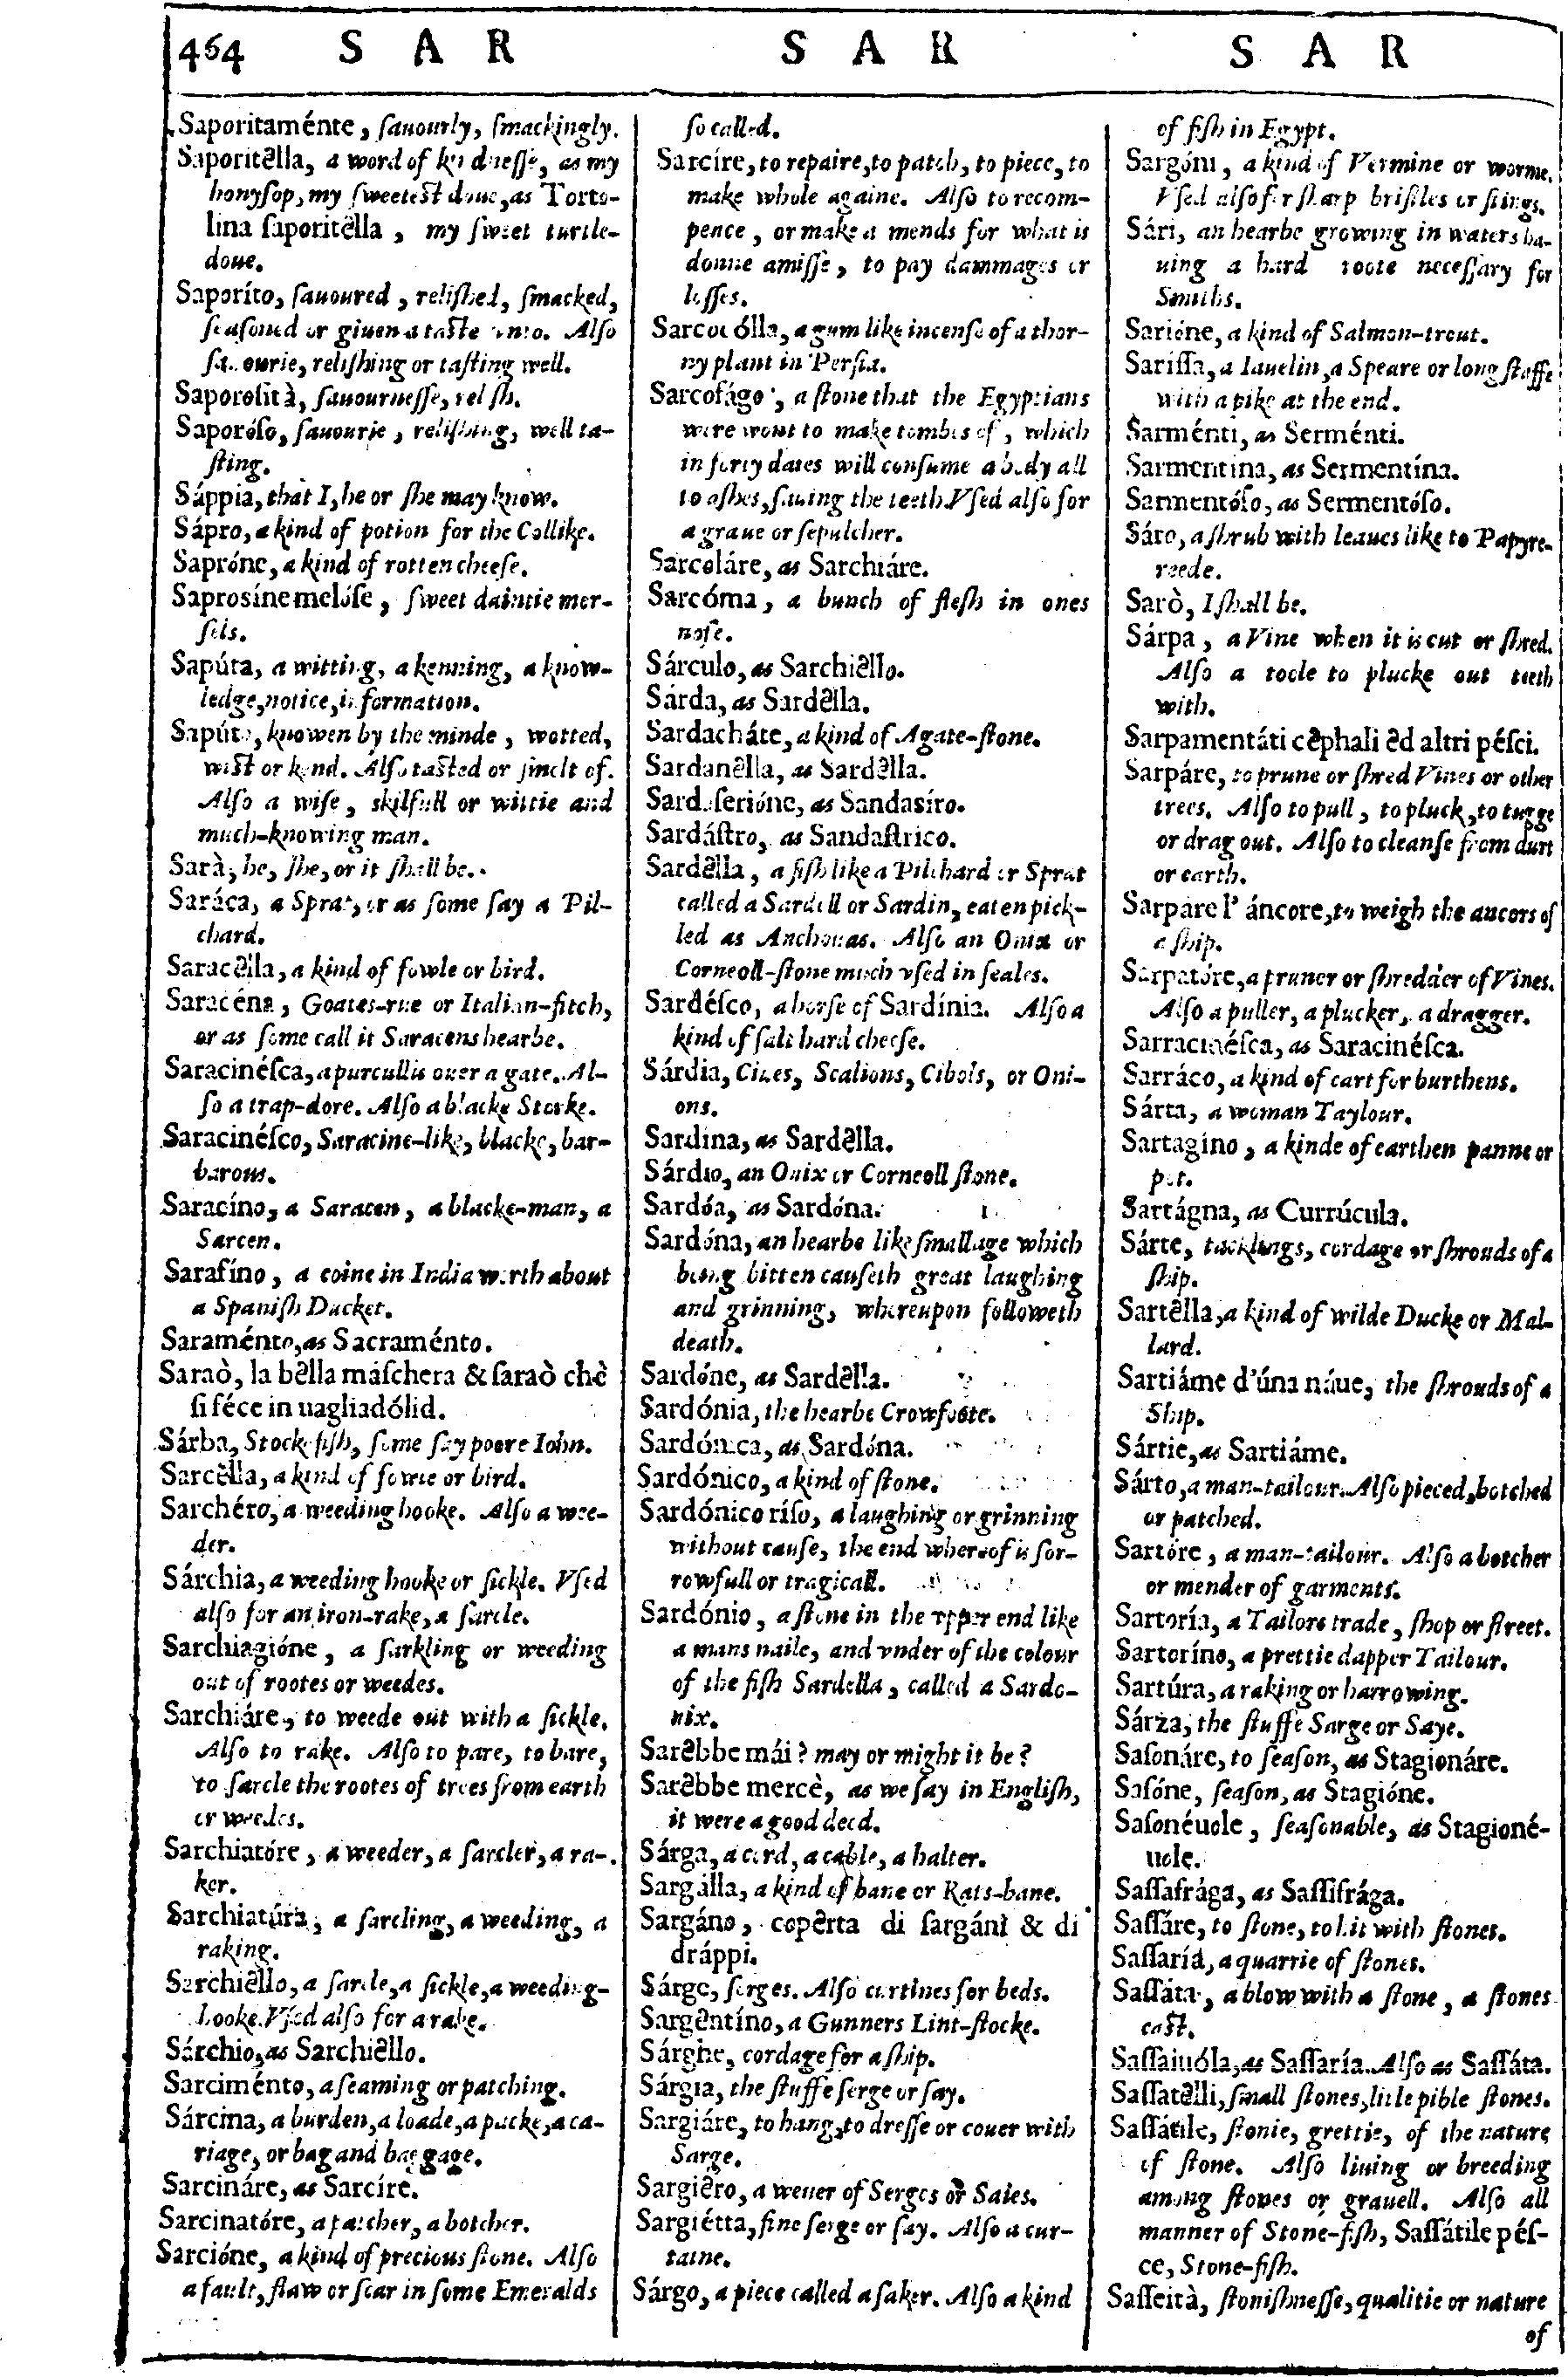 464 S A R S A R S A R
Saporitaménte, ſauourly, ſmackingly.
Saporitẽlla, a word of kindneſſe, as my
honyſop, my ſweeteſt doue, as Torto-
lina ſaporitẽlla, my ſweet turtle-
doue.
Saporíto, ſauoured, reliſhed, ſmacked,
ſeaſoned or giuen a taſte vnto. Alſo
ſauourie, reliſhing or taſting well.
Saporoſità, ſauourneſſe, reliſh.
Saporóſo, ſauourie, reliſhing, well ta-
ſting.
Sáppia, that I, he or ſhe may know.
Sápro, a kind of potion for the Collike.
Sapróne, a kind of rotten cheeſe.
Saprosíne melóſe, ſweet daintie mor-
ſels.
Sapúta, a witting, a kenning, a know-
ledge, notice, information.
Sapúto, knowen by the minde, wotted,
wiſt or kend. Alſo taſted or ſmelt of.
Alſo a wiſe, skilfull or wittie and
much-knowing man.
Sarà, he, ſhe, or it ſhall be.
Saráca, a Sprat, or as ſome ſay a Pil-
chard.
Saracẽlla, a kind of fowle or bird.
Saracéna, Goates-rue or Italian-fitch,
or as ſome call it Saracens hearbe.
Saracinéſca, a purcullis ouer a gate. Al-
ſo a trap-dore. Alſo a blacke Storke.
Saracinéſco, Saracine-like, blacke, bar-
barous.
Saracíno, a Saracen, a blacke-man, a
Sarcen.
Sarafíno, a coine in India worth about
a Spaniſh Ducket.
Saraménto, as Sacraménto.
Saraò, la bẽlla máſchera & ſaraò chè
ſi féce in uagliadólid.
Sárba, Stocke fiſh, ſome ſay poore Iohn.
Sarcẽlla, a kind of fowle or bird.
Sarchéro, a weeding hooke. Alſo a wee-
der.
Sárchia, a weeding hooke or ſickle. Vſed
alſo for an iron-rake, a ſarcle.
Sarchiagióne, a ſarkling or weeding
out of rootes or weedes.
Sarchiáre, to weede out with a ſickle.
Alſo to rake. Alſo to pare, to bare,
to ſarcle the rootes of trees from earth
or weedes.
Sarchiatóre, a weeder, a ſarcler, a ra-
ker.
Sarchiatúra, a ſarcling, a weeding, a
raking.
Sarchiẽllo, a ſarcle, a ſickle, a weeding-
hooke. Vſed alſo for a rake.
Sárchio, as Sarchiẽllo.
Sarciménto, a ſeaming or patching.
Sárcina, a burden, a loade, a packe, a ca-
riage, or bag and baggage.
Sarcináre, as Sarcíre.
Sarcinatóre, a patcher, a botcher.
Sarcióne, a kind of precious ſtone. Alſo
a fault, flaw or ſcar in ſome Emeralds
ſo called.
Sarcíre, to repaire, to patch, to piece, to
make whole againe. Alſo to recom-
pence, or make a mends for what is
donne amiſſe, to pay dammages or
loſſes.
Sarcocólla, a gum like incenſe of a thor-
ny plant in Perſia.
Sarcofágo, a ſtone that the Egyptians
were wont to make tombes of, which
in forty daies will conſume a body all
to aſhes, ſauing the teeth. Vſed alſo for
a graue or ſepulcher.
Sarcoláre, as Sarchiáre.
Sarcóma, a bunch of fleſh in ones
noſe.
Sárculo, as Sarchiẽllo.
Sárda, as Sardẽlla.
Sardacháte, a kind of Agate-ſtone.
Sardanẽlla, as Sardẽlla.
Sardaſerióne, as Sandasíro.
Sardáſtro, as Sandaſtrico.
Sardẽlla, a fiſh like a Pilchard or Sprat
called a Sardell or Sardin, eaten pick-
led as Anchouas. Alſo an Onix or
Corneoll-ſtone much vſed in ſeales.
Sardéſco, a horſe of Sardínia. Alſo a
kind of ſalt hard cheeſe.
Sárdia, Ciues, Scalions, Cibols, or Oni-
ons.
Sardina, as Sardẽlla.
Sárdio, an Onix or Corneoll ſtone.
Sardóa, as Sardóna.
Sardóna, an hearbe like ſmallage which
being bitten cauſeth great laughing
and grinning, whereupon followeth
death.
Sardóne, as Sardẽlla.
Sardónia, the hearbe Crowfoote.
Sardónica, as Sardóna.
Sardónico, a kind of ſtone.
Sardónico ríſo, a laughing or grinning
without cauſe, the end whereof is ſor-
rowfull or tragicall.
Sardónio, a ſtone in the vpper end like
a mans naile, and vnder of the colour
of the fiſh Sardella, called a Sardo-
nix.
Sarẽbbe mái? may or might it be?
Sarẽbbe mercè, as we ſay in Engliſh,
it were a good deed.
Sárga, a cord, a cable, a halter.
Sargálla, a kind of bane or Rats-bane.
Sargáno, copẽrta di ſargáni & di
dráppi.
Sárge, ſerges. Alſo curtines for beds.
Sargẽntíno, a Gunners Lint-ſtocke.
Sárghe, cordage for a ſhip.
Sárgia, the ſtuffe ſerge or ſay.
Sargiáre, to hang, to dreſſe or couer with
Sarge.
Sargiẽro, a weuer of Serges or Saies.
Sargiétta, fine ſerge or ſay. Alſo a cur-
taine.
Sárgo, a piece called a ſaker. Alſo a kind
of fiſh in Egypt.
Sargóni, a kind of Vermine or worme.
Vſed alſo for ſharp briſtles or ſtings.
Sári, an hearbe growing in waters ha-
uing a hard roote neceſſary for
Smiths.
Sarióne, a kind of Salmon-trout.
Sariſſa, a Iauelin, a Speare or long ſtaffe
with a pike at the end.
Sarménti, as Serménti.
Sarmentína, as Sermentína.
Sarmentóſo, as Sermentóſo.
Sáro, a ſhrub with leaues like to Papyre-
reede.
Sarò, I ſhall be.
Sárpa, a Vine when it is cut or ſhred.
Alſo a toole to plucke out teeth
with.
Sarpamentáti cẽphali ẽd altri péſci.
Sarpáre, to prune or ſhred Vines or other
trees. Alſo to pull, to pluck, to tugge
or drag out. Alſo to cleanſe from durt
or earth.
Sarpáre l' áncore, to weigh the ancors of
a ſhip.
Sarpatóre, a pruner or ſhredder of Vines.
Alſo a puller, a plucker, a dragger.
Sarracinéſca, as Saracinéſca.
Sarráco, a kind of cart for burthens.
Sárta, a woman Taylour.
Sartagíno, a kinde of earthen panne or
pot.
Sartágna, as Currúcula.
Sárte, tacklings, cordage or ſhrouds of a
ſhip.
Sartẽlla, a kind of wilde Ducke or Mal-
lard.
Sartiáme d'úna náue, the ſhrouds of a
Ship.
Sártie, as Sartiáme.
Sárto, a man-tailour. Alſo pieced, botched
or patched.
Sartóre, a man-tailour. Alſo a botcher
or mender of garments.
Sartoría, a Tailors trade, ſhop or ſtreet.
Sartoríno, a prettie dapper Tailour.
Sartúra, a raking or harrowing.
Sárza, the ſtuffe Sarge or Saye.
Saſonáre, to ſeaſon, as Stagionáre.
Saſóne, ſeaſon, as Stagióne.
Saſonéuole, ſeaſonable, as Stagioné-
uole.
Saſſafrága, as Saſſifrága.
Saſſáre, to ſtone, to hit with ſtones.
Saſſaría, a quarrie of ſtones.
Saſſáta, a blow with a ſtone, a ſtones
caſt.
Saſſaiuóla, as Saſſaría. Alſo as Saſſáta.
Saſſatẽlli, ſmall ſtones, litle pible ſtones.
Saſſátile, ſtonie, grettie, of the nature
of ſtone. Alſo liuing or breeding
among ſtones or grauell. Alſo all
manner of Stone-fiſh, Saſſátile péſ-
ce, Stone-fiſh.
Saſſeità, ſtoniſhneſſe, qualitie or nature
of